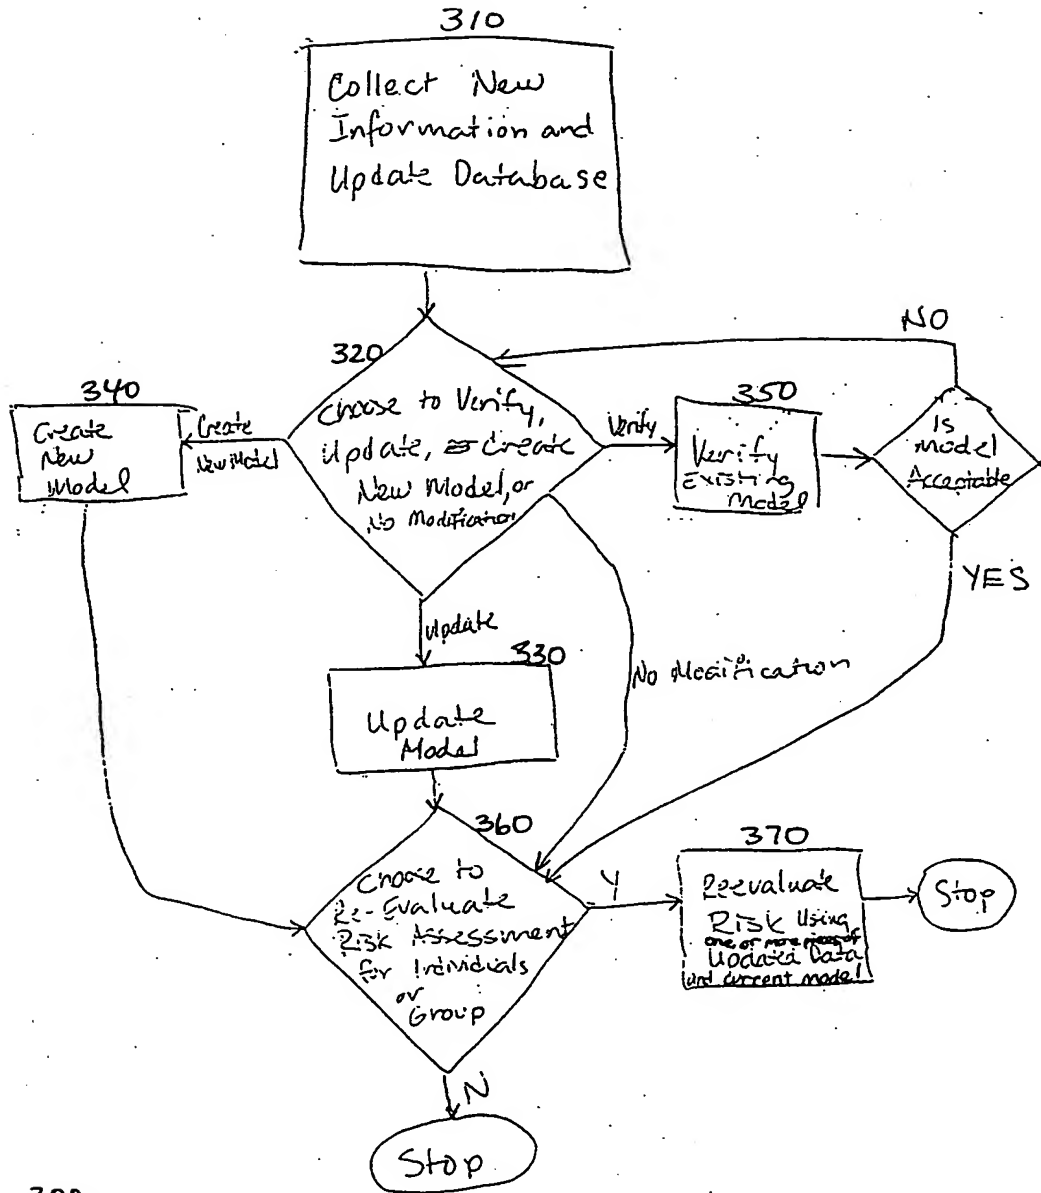 310
Collect New
Information and
Update Database
NO
320
340
350
Choose to Verify,
Update, Create
New Model, or
No Modification
Create
New Model
Create
New
Model
Verify
Verify
Existing
Model
Is
Model
Acceptable
YES
Update
330
Update
Model
No Modification
360
Choose to
Re-Evaluate
Risk Assessment
for Individuals
or
Group
Y
370
Reevaluate
Risk Using
one or more pieces of
Updated Data
and current model
Stop
N
Stop